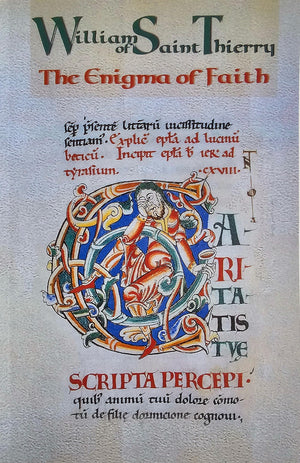 William of Saint Thierry
The Enigma of Faith
semp p̄sente litterarū vicissitudine
sentiam. Explic̄ epła ad lucinū
beticū. Incipit epła b̄ ier̄ ad
tyrasium. .CXVIII.
CARITATIS
TVE
SCRIPTA PERCEPI.
quib; animū tuū dolore cōmo
tū de filie dormicione cognoui.